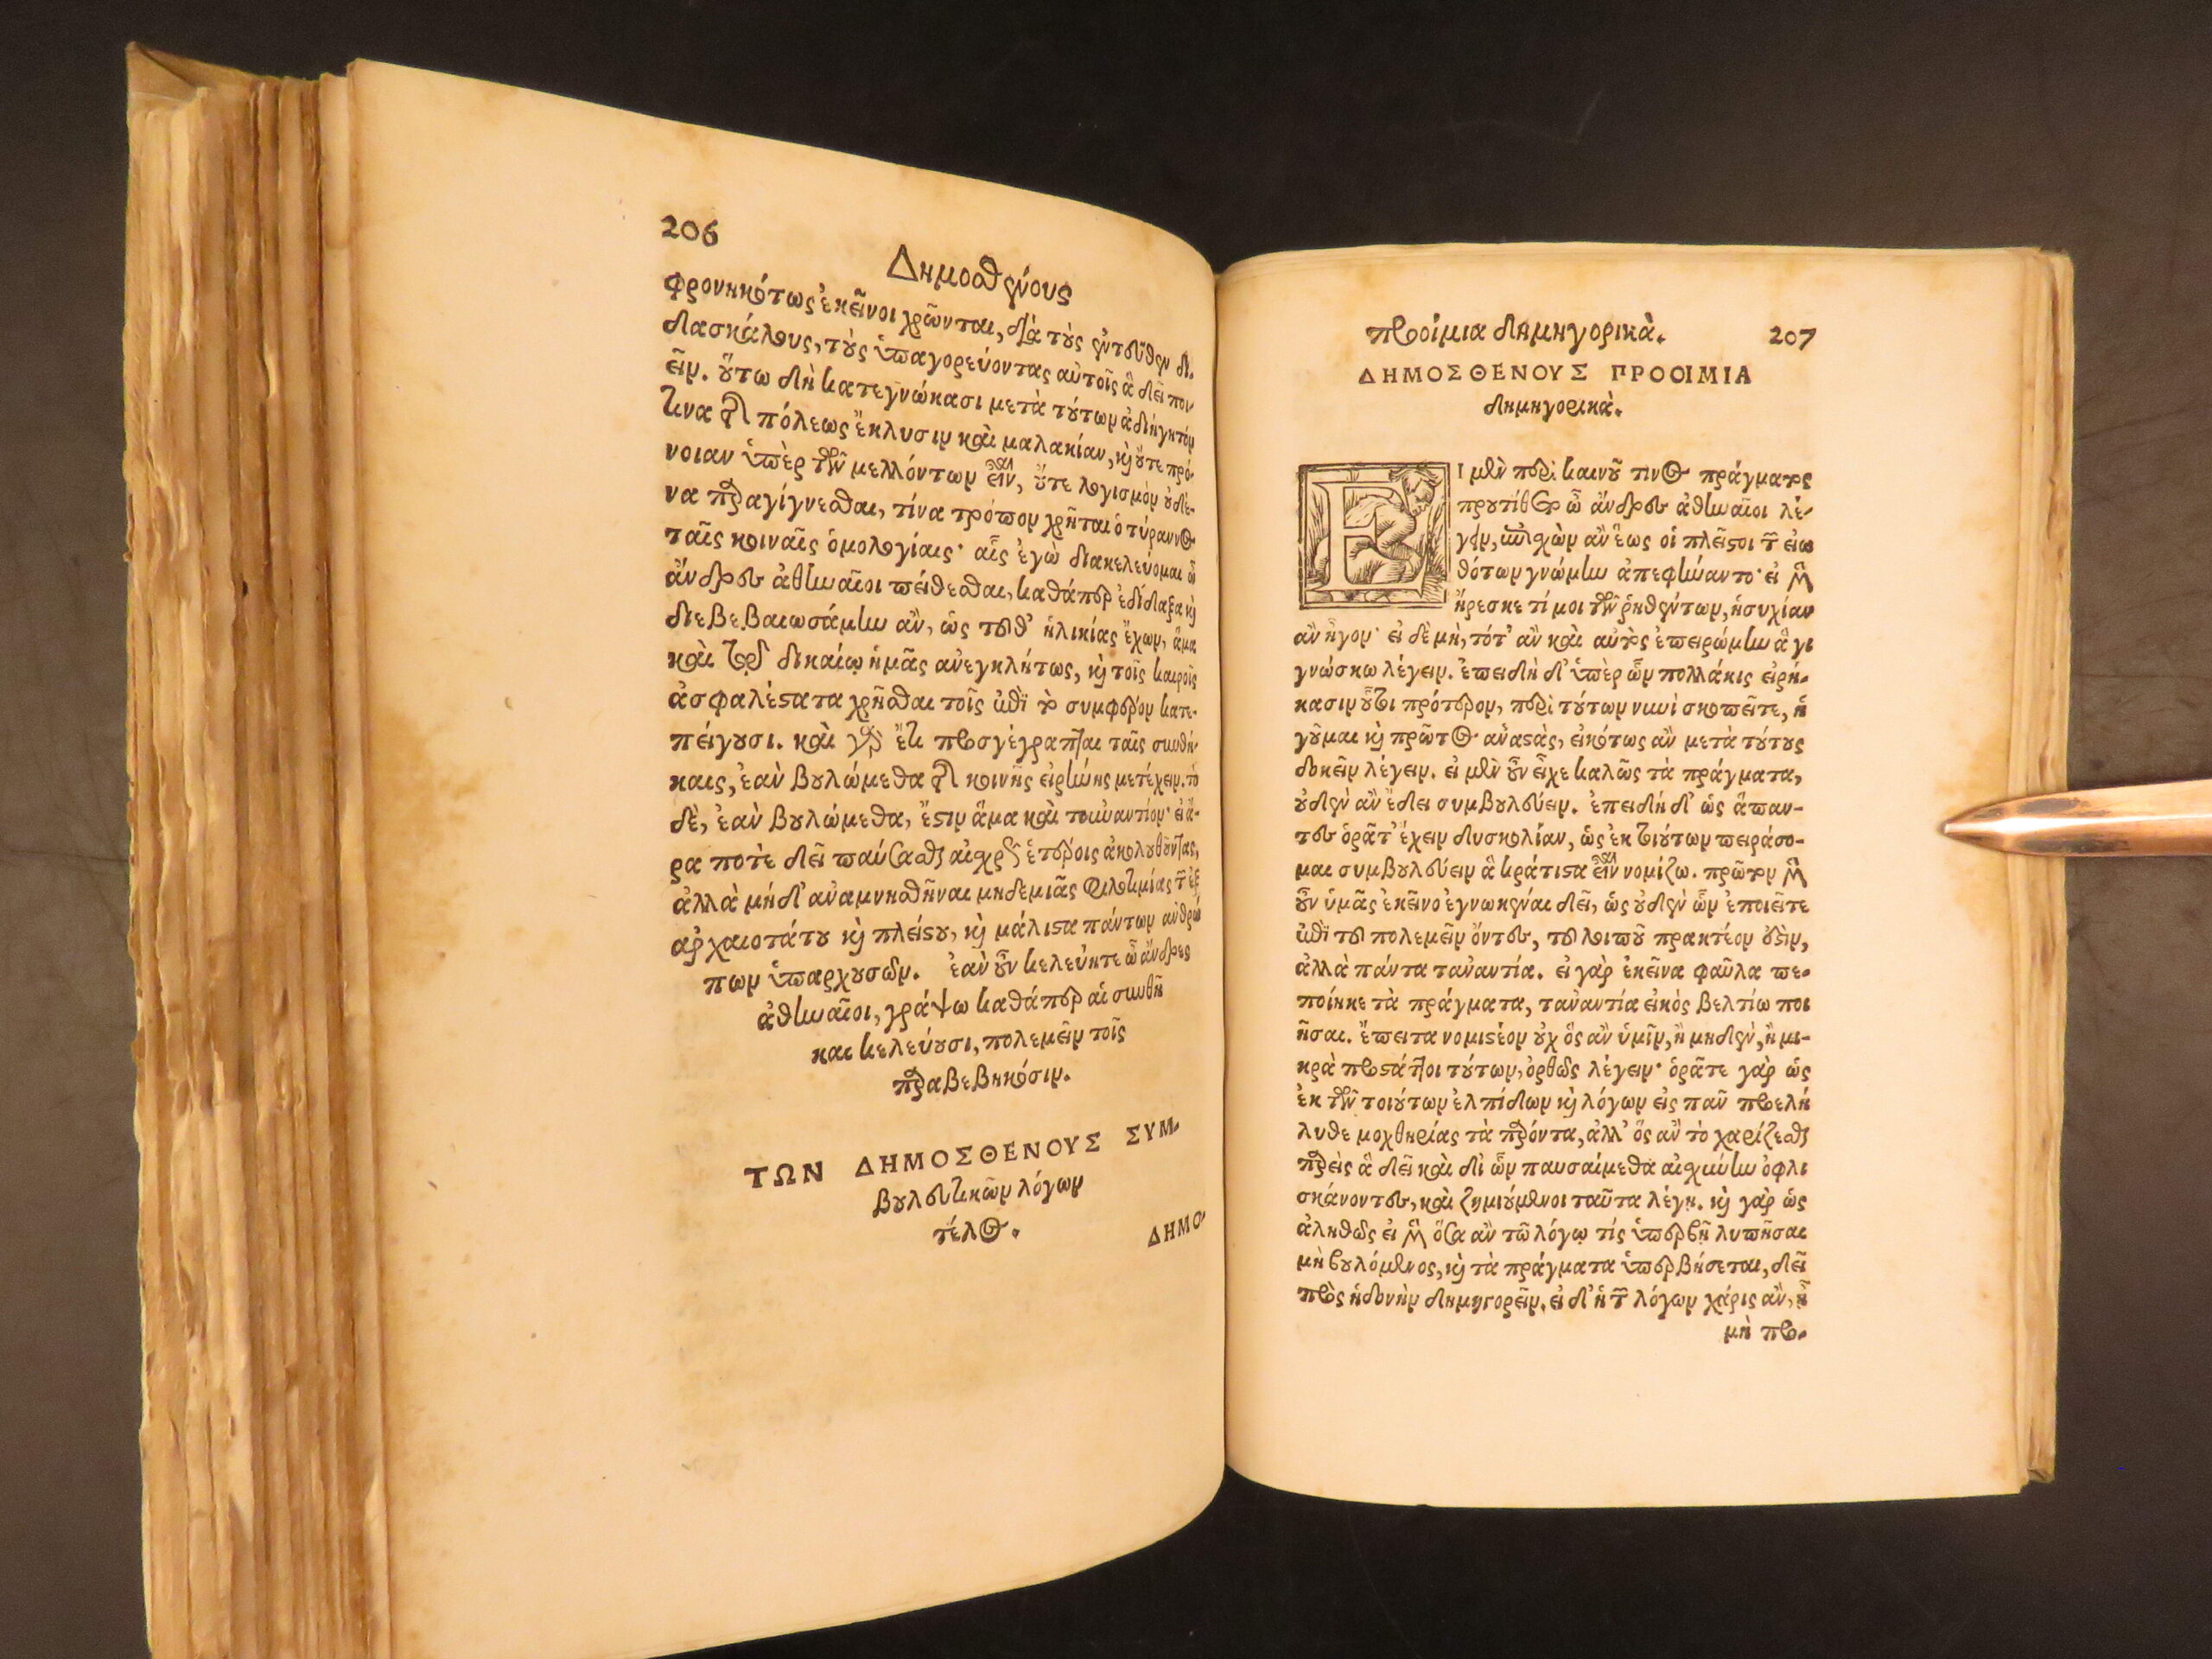 206
Δημοσθένους
φρονηκότως ἐκεῖνοι χρῶνται, διὰ τοὺς ἐντεῦθεν δι-
δασκάλους, τοὺς ὑπαγορεύοντας αὐτοῖς ἃ δεῖ ποι-
εῖν. οὕτω δὴ κατεγνώκασι μετὰ τούτων ἀδιήγητόν
τινα τῆς πόλεως ἔκλυσιν καὶ μαλακίαν, καὶ οὔτε πρό-
νοιαν ὑπὲρ τῶν μελλόντων εἶναι, οὔτε λογισμὸν οὐδέ-
να παραγίγνεσθαι, τίνα τρόπον χρῆται ὁ τύραννος
ταῖς κοιναῖς ὁμολογίαις· αἷς ἐγὼ διακελεύομαι ὦ
ἄνδρες ἀθηναῖοι πείθεσθαι, καθάπερ ἐδίδαξα καὶ
διεβεβαιωσάμην ἂν, ὡς τῆς ἡλικίας ἔχων, ἅμα
καὶ τῷ δικαίῳ ἡμᾶς ἀνεγκλήτως, καὶ τοῖς καιροῖς
ἀσφαλέστατα χρῆσθαι τοῖς ἐπὶ τὸ συμφέρον κατε-
πείγουσι. καὶ γὰρ ἔτι προσγέγραπται ταῖς συνθή-
καις, ἐὰν βουλώμεθα τῆς κοινῆς εἰρήνης μετέχειν. τὸ
δὲ, ἐὰν βουλώμεθα, ἔστιν ἅμα καὶ τοὐναντίον· εἰ ἄ-
ρα ποτὲ δεῖ παύσασθαι αἰσχρῶς ἑτέροις ἀκολουθοῦντας,
ἀλλὰ μήδ' ἀναμνησθῆναι μηδεμιᾶς φιλοτιμίας τῶν ἐξ
ἀρχαιοτάτου καὶ πλείστου, καὶ μάλιστα πάντων ἀνθρώ
πων ὑπαρχουσῶν. ἐὰν οὖν κελεύητε ὦ ἄνδρες
ἀθηναῖοι, γράψω καθάπερ αἱ συνθῆ
και κελεύουσι, πολεμεῖν τοῖς
παραβεβηκόσιν.
ΤΩΝ ΔΗΜΟΣΘΕΝΟΥΣ ΣΥΜ-
βουλευτικῶν λόγων
τέλος.
ΔΗΜΟ-
προίμια δημηγορικὰ.
207
ΔΗΜΟΣΘΕΝΟΥΣ ΠΡΟΟΙΜΙΑ
δημηγορικὰ.
ΕΙ μὲν περὶ καινοῦ τινος πράγματος
προυτίθετο ὦ ἄνδρες ἀθηναῖοι λέ-
γειν, ἐπισχὼν ἂν ἕως οἱ πλεῖστοι τῶν εἰω
θότων γνώμην ἀπεφήναντο· εἰ μὲν
ἤρεσκε τί μοι τῶν ῥηθέντων, ἡσυχίαν
ἂν ἦγον· εἰ δὲ μὴ, τότ' ἂν καὶ αὐτὸς ἐπειρώμην ἃ γι
γνώσκω λέγειν. ἐπειδὴ δ' ὑπὲρ ὧν πολλάκις εἰρή-
κασιν οὗτοι πρότερον, περὶ τούτων νυνὶ σκοπεῖτε, ἡ
γοῦμαι καὶ πρῶτος ἀναστὰς, εἰκότως ἂν μετὰ τούτους
δοκεῖν λέγειν. εἰ μὲν οὖν εἶχε καλῶς τὰ πράγματα,
οὐδὲν ἂν ἔδει συμβουλεύειν. ἐπειδὴ δ' ὡς ἅπαν-
τες ὁρᾶτ' ἔχειν δυσκολίαν, ὡς ἐκ τοιούτων πειράσο-
μαι συμβουλεύειν ἃ κράτιστα εἶναι νομίζω. πρῶτον μὲν
οὖν ὑμᾶς ἐκεῖνο ἐγνωκέναι δεῖ, ὡς οὐδὲν ὧν ἐποιεῖτε
ἐπὶ τοῦ πολεμεῖν ὄντες, τοῦ λοιποῦ πρακτέον ἐστὶν,
ἀλλὰ πάντα ταναντία. εἰ γὰρ ἐκεῖνα φαῦλα πε-
ποίηκε τὰ πράγματα, ταναντία εἰκὸς βελτίω ποι
ῆσαι. ἔπειτα νομιστέον οὐχ ὃς ἂν ὑμῖν, ἢ μηδὲν, ἢ μι-
κρὰ προστάττοι τούτων, ὀρθῶς λέγειν· ὁρᾶτε γὰρ ὡς
ἐκ τῶν τοιούτων ἐλπίδων καὶ λόγων εἰς πᾶν προελή
λυθε μοχθηρίας τὰ παρόντα, ἀλλ' ὃς ἂν τὸ χαρίζεσθαι
παρεὶς ἃ δεῖ καὶ δι' ὧν παυσαίμεθα αἰσχύνην ὀφλι
σκάνοντες, καὶ ζημιούμενοι ταῦτα λέγῃ. καὶ γὰρ ὡς
ἀληθῶς εἰ μὲν ὅσα ἂν τῷ λόγῳ τίς ὑπερβῇ λυπῆσαι
μὴ βουλόμενος, καὶ τὰ πράγματα ὑπερβήσεται, δεῖ
πρὸς ἡδονὴν δημηγορεῖν. εἰ δ' ἡ τῶν λόγων χάρις ἂν, ᾖ
μὴ προ-